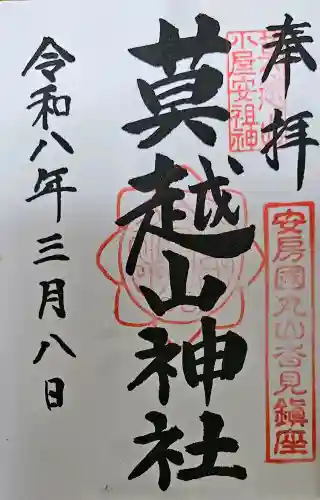 奉拝
小屋安祖神
莫越山神社
安房國丸山沓見鎮座
令和八年三月八日